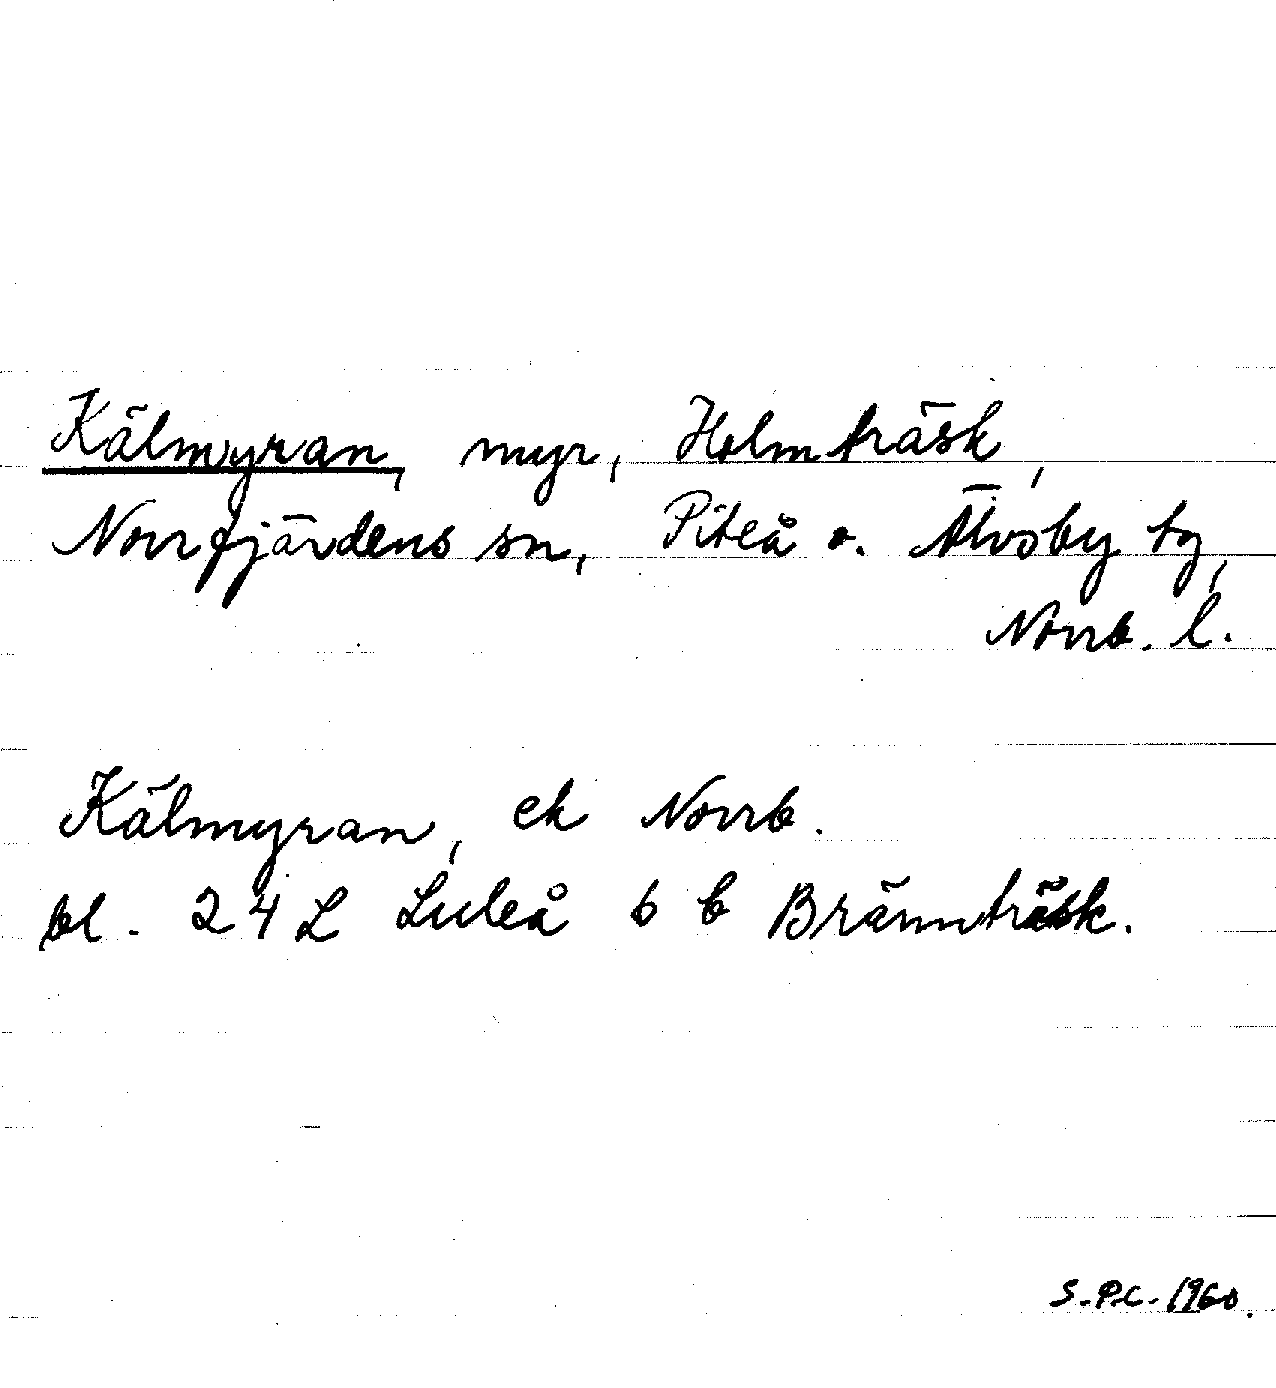 Kälmyran, myr, Holmträsk,
Norrfjärdens sn, Piteå o. Älvsby tg,
Norrb. l.
Kälmyran, ek Norrb.
bl. 24 L Luleå 6 b Brännträsk.
S.P.C. 1960.